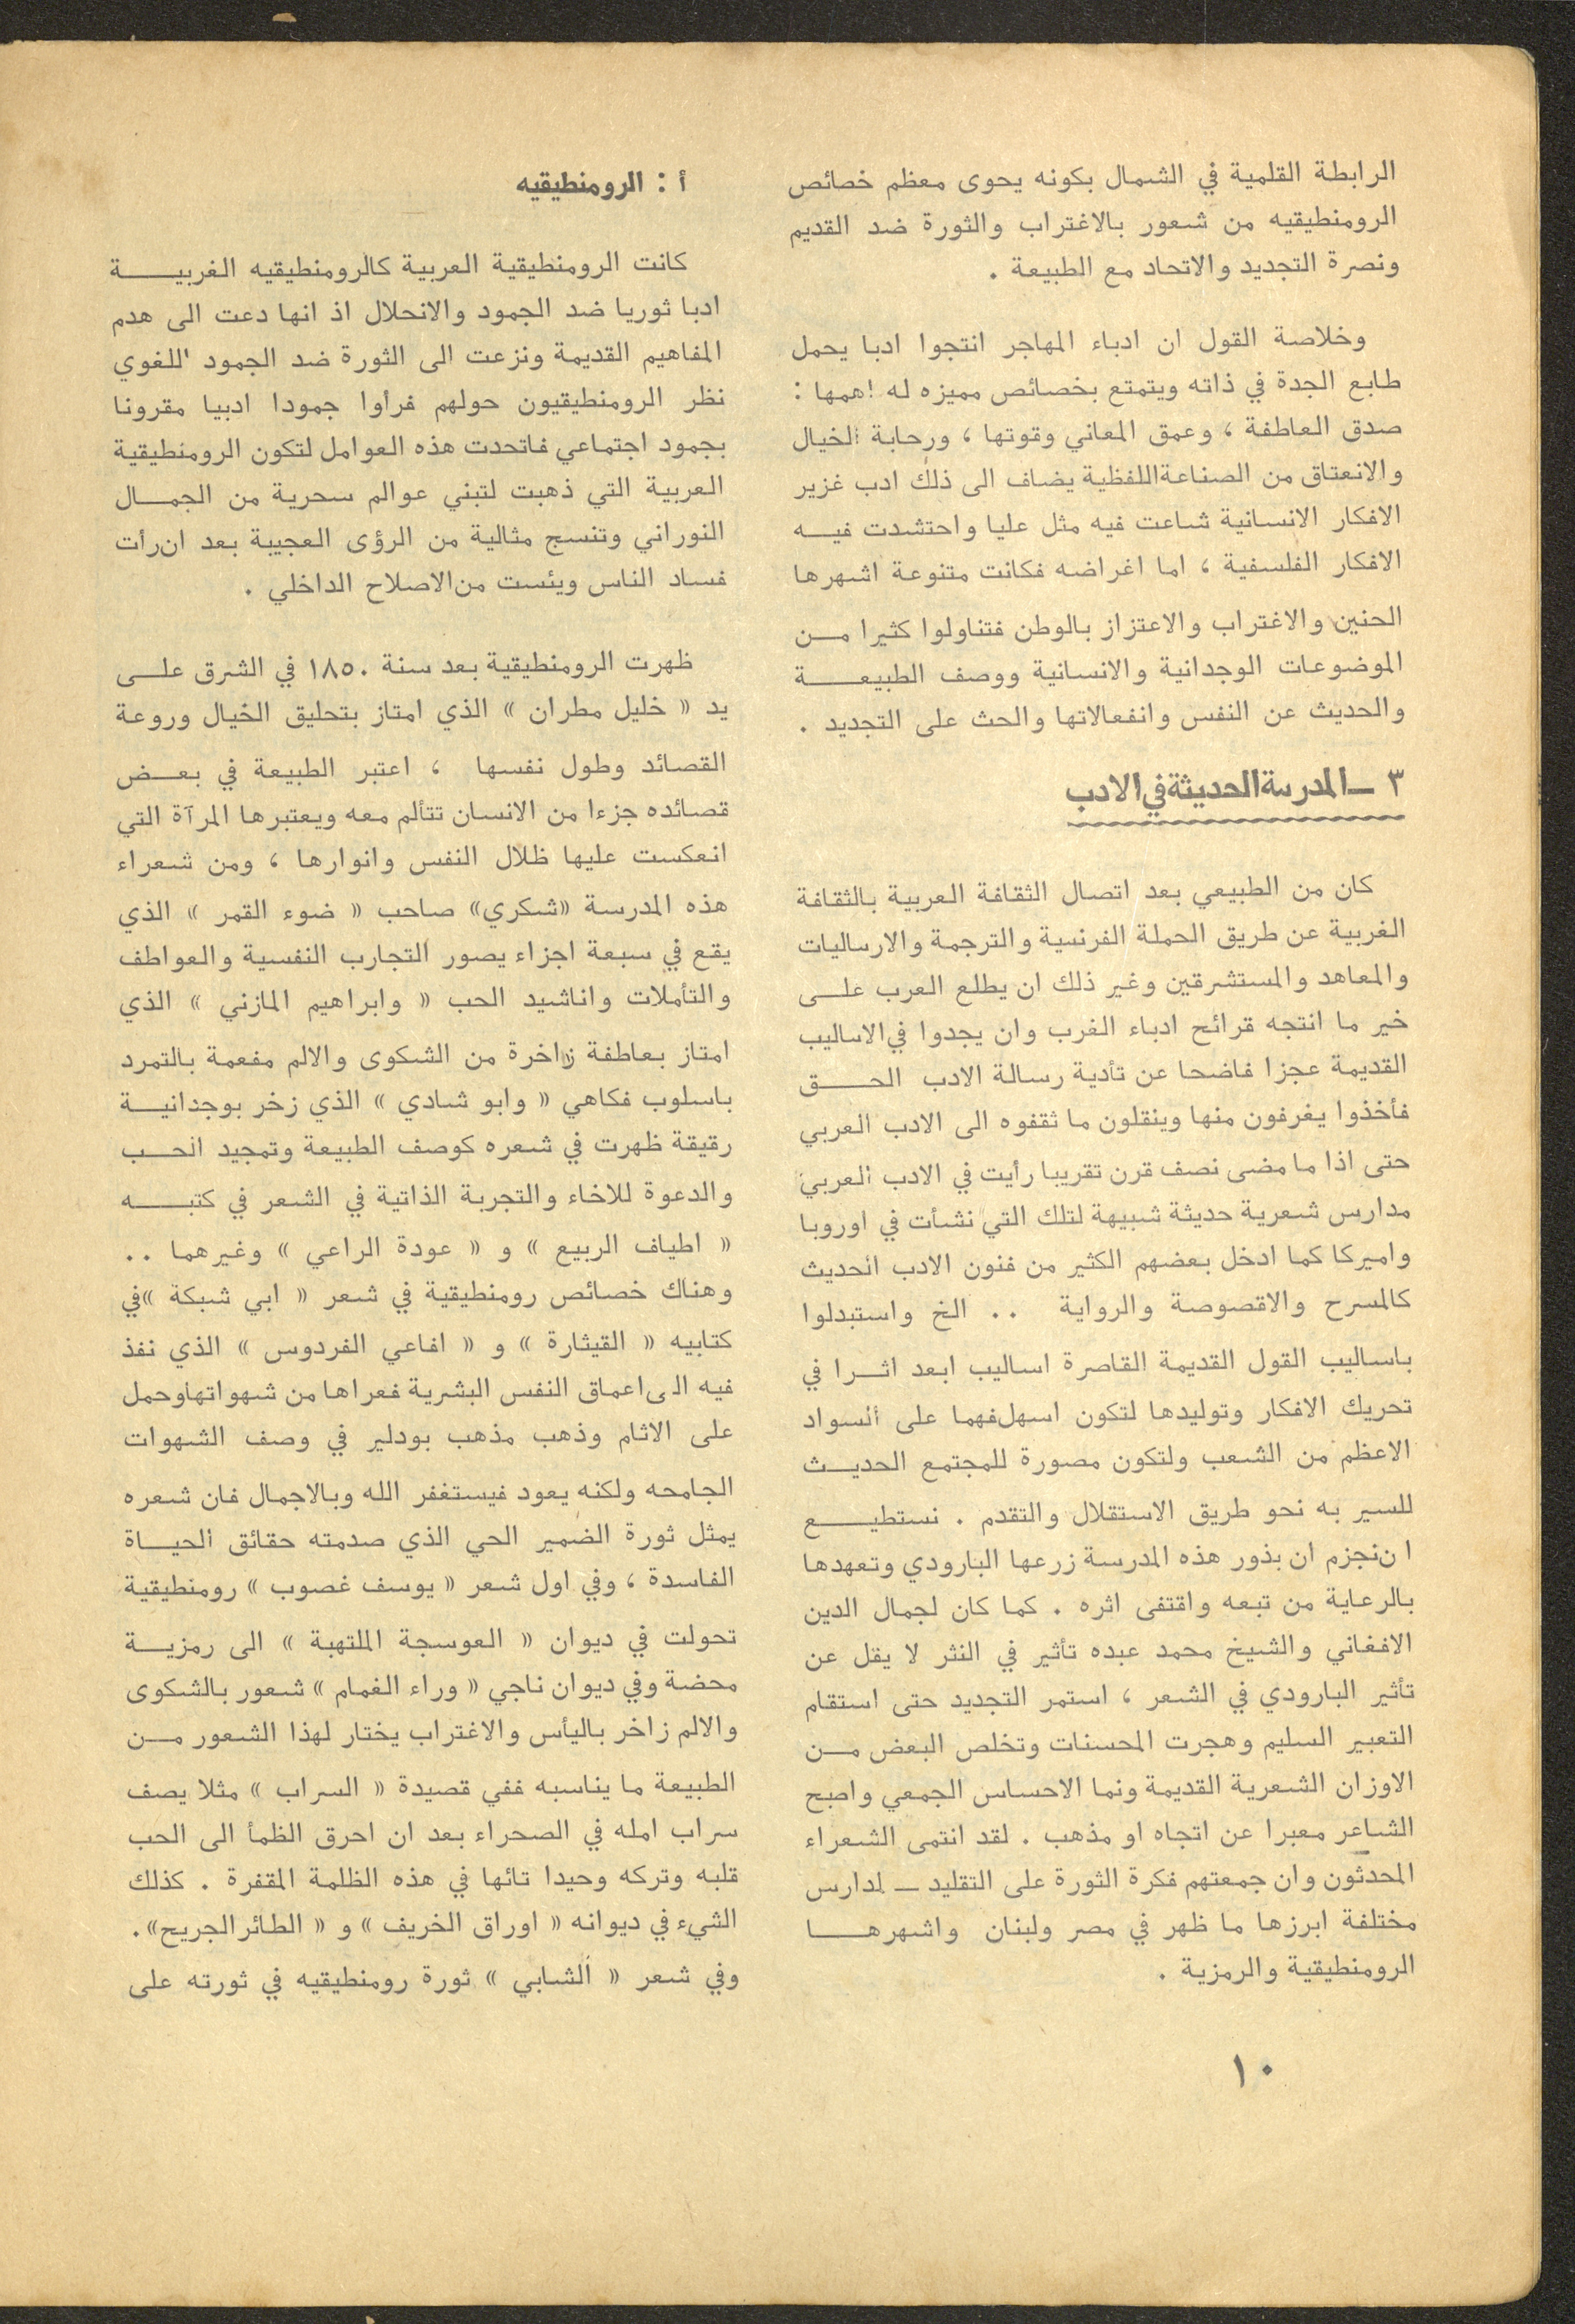 الرابطة القلمية في الشمال بكونه يحوى معظم خصائص
الرومنطيقيه من شعور بالاغتراب والثورة ضد القديم
ونصرة التجديد والاتحاد مع الطبيعة .
وخلاصة القول ان ادباء المهاجر انتجوا ادبا يحمل
طابع الجدة في ذاته ويتمتع بخصائص مميزه له اهمها :
صدق العاطفة ، وعمق المعاني وقوتها ، ورحابة الخيال
والانعتاق من الصناعة اللفظية يضاف الى ذلك ادب غزير
الافكار الانسانية شاعت فيه مثل عليا واحتشدت فيـــه
الافكار الفلسفية ، اما اغراضه فكانت متنوعة اشهرها
الحنين والاغتراب والاعتزاز بالوطن فتناولوا كثيرا مــن
الموضوعات الوجدانية والانسانية ووصف الطبيعــــة
والحديث عن النفس وانفعالاتها والحث على التجديد .
٣ ــ المدرسة الحديثة في الادب
كان من الطبيعي بعد اتصال الثقافة العربية بالثقافة
الغربية عن طريق الحملة الفرنسية والترجمة والارساليات
والمعاهد والمستشرقين وغير ذلك ان يطلع العرب علـــى
خير ما انتجه قرائح ادباء الغرب وان يجدوا في الاساليب
القديمة عجزا فاضحا عن تأدية رسالة الادب الحــــق
فأخذوا يغرفون منها وينقلون ما ثقفوه الى الادب العربي
حتى اذا ما مضى نصف قرن تقريبا رأيت في الادب العربي
مدارس شعرية حديثة شبيهة لتلك التي نشأت في اوروبا
واميركا كما ادخل بعضهم الكثير من فنون الادب الحديث
كالمسرح والاقصوصة والرواية .. الخ واستبدلوا
باساليب القول القديمة القاصرة اساليب ابعد اثــرا في
تحريك الافكار وتوليدها لتكون اسهل فهما على السواد
الاعظم من الشعب ولتكون مصورة للمجتمع الحديــث
للسير به نحو طريق الاستقلال والتقدم . نستطيــــع
ا ن نجزم ان بذور هذه المدرسة زرعها البارودي وتعهدها
بالرعاية من تبعه واقتفى اثره . كما كان لجمال الدين
الافغاني والشيخ محمد عبده تأثير في النثر لا يقل عن
تأثير البارودي في الشعر ، استمر التجديد حتى استقام
التعبير السليم وهجرت المحسنات وتخلص البعض مــن
الاوزان الشعرية القديمة ونما الاحساس الجمعي واصبح
الشاعر معبرا عن اتجاه او مذهب . لقد انتمى الشعراء
المحدثون وان جمعتهم فكرة الثورة على التقليد ــ لمدارس
مختلفة ابرزها ما ظهر في مصر ولبنان واشهرهــــا
الرومنطيقية والرمزية .
أ : الرومنطيقيه
كانت الرومنطيقية العربية كالرومنطيقيه الغربيـــــة
ادبا ثوريا ضد الجمود والانحلال اذ انها دعت الى هدم
المفاهيم القديمة ونزعت الى الثورة ضد الجمود اللغوي
نظر الرومنطيقيون حولهم فرأوا جمودا ادبيا مقرونا
بجمود اجتماعي فاتحدت هذه العوامل لتكون الرومنطيقية
العربية التي ذهبت لتبني عوالم سحرية من الجمـــال
النوراني وتنسج مثالية من الرؤى العجيبة بعد ان رأت
فساد الناس ويئست من الاصلاح الداخلي .
ظهرت الرومنطيقية بعد سنة ١٨٥٠ في الشرق علـــى
يد « خليل مطران » الذي امتاز بتحليق الخيال وروعة
القصائد وطول نفسها ، اعتبر الطبيعة في بعــض
قصائده جزءا من الانسان تتألم معه ويعتبرها المرآة التي
انعكست عليها ظلال النفس وانوارها ، ومن شعراء
هذه المدرسة «شكري» صاحب « ضوء القمر » الذي
يقع في سبعة اجزاء يصور التجارب النفسية والعواطف
والتأملات واناشيد الحب « وابراهيم المازني » الذي
امتاز بعاطفة زاخرة من الشكوى والالم مفعمة بالتمرد
باسلوب فكاهي « وابو شادي » الذي زخر بوجدانيـــة
رقيقة ظهرت في شعره كوصف الطبيعة وتمجيد الحــب
والدعوة للاخاء والتجربة الذاتية في الشعر في كتبـــه
« اطياف الربيع » و « عودة الراعي » وغيرهما ..
وهناك خصائص رومنطيقية في شعر « ابي شبكة » في
كتابيه « القيثارة » و « افاعي الفردوس » الذي نفذ
فيه الى اعماق النفس البشرية فعراها من شهواتها وحمل
على الاثام وذهب مذهب بودلير في وصف الشهوات
الجامحه ولكنه يعود فيستغفر الله وبالاجمال فان شعره
يمثل ثورة الضمير الحي الذي صدمته حقائق الحيــاة
الفاسدة ، وفي اول شعر « يوسف غصوب » رومنطيقية
تحولت في ديوان « العوسجة الملتهبة » الى رمزيـــة
محضة وفي ديوان ناجي « وراء الغمام » شعور بالشكوى
والالم زاخر باليأس والاغتراب يختار لهذا الشعور مــن
الطبيعة ما يناسبه ففي قصيدة « السراب » مثلا يصف
سراب امله في الصحراء بعد ان احرق الظمأ الى الحب
قلبه وتركه وحيدا تائها في هذه الظلمة المقفرة . كذلك
الشيء في ديوانه « اوراق الخريف » و « الطائر الجريح» .
وفي شعر « الشابي » ثورة رومنطيقيه في ثورته على
١٠